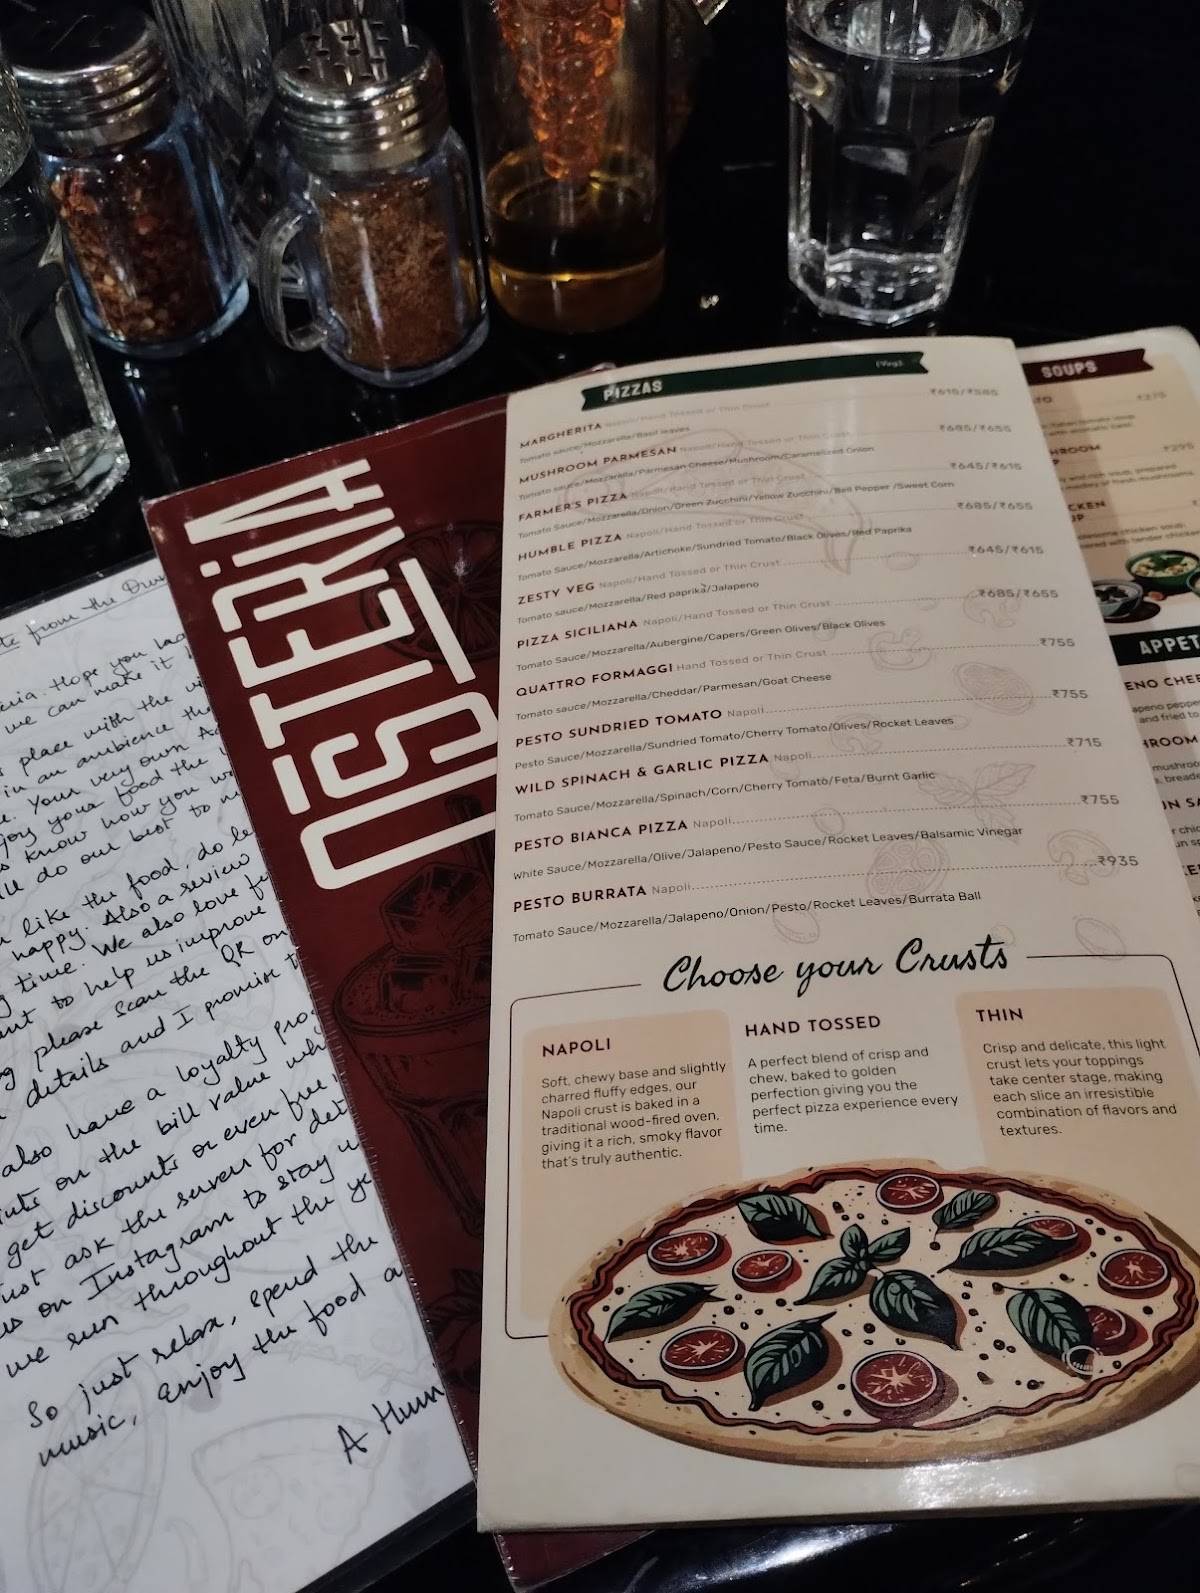 PIZZAS
(Veg)
MARGHERITA Napoli/Hand Tossed or Thin Crust ₹615/₹585
Tomato sauce/Mozzarella/Basil leaves
MUSHROOM PARMESAN Napoli/Hand Tossed or Thin Crust ₹685/₹655
Tomato sauce/Mozzarella/Parmesan Cheese/Mushroom/Caramelized Onion
FARMER'S PIZZA Napoli/Hand Tossed or Thin Crust ₹645/₹615
Tomato Sauce/Mozzarella/Onion/Green Zucchini/Yellow Zucchini/Bell Pepper /Sweet Corn
HUMBLE PIZZA Napoli/Hand Tossed or Thin Crust ₹685/₹655
Tomato Sauce/Mozzarella/Artichoke/Sundried Tomato/Black Olives/Red Paprika
ZESTY VEG Napoli/Hand Tossed or Thin Crust ₹645/₹615
Tomato sauce/Mozzarella/Red paprika/Jalapeno
PIZZA SICILIANA Napoli/Hand Tossed or Thin Crust ₹685/₹655
Tomato Sauce/Mozzarella/Aubergine/Capers/Green Olives/Black Olives
QUATTRO FORMAGGI Hand Tossed or Thin Crust ₹755
Tomato sauce/Mozzarella/Cheddar/Parmesan/Goat Cheese
PESTO SUNDRIED TOMATO Napoli ₹755
Pesto Sauce/Mozzarella/Sundried Tomato/Cherry Tomato/Olives/Rocket Leaves
WILD SPINACH & GARLIC PIZZA Napoli ₹715
Tomato Sauce/Mozzarella/Spinach/Corn/Cherry Tomato/Feta/Burnt Garlic
PESTO BIANCA PIZZA Napoli ₹755
White Sauce/Mozzarella/Olive/Jalapeno/Pesto Sauce/Rocket Leaves/Balsamic Vinegar
PESTO BURRATA Napoli ₹935
Tomato Sauce/Mozzarella/Jalapeno/Onion/Pesto/Rocket Leaves/Burrata Ball
Choose your Crusts
NAPOLI
Soft, chewy base and slightly
charred fluffy edges, our
Napoli crust is baked in a
traditional wood-fired oven,
giving it a rich, smoky flavor
that's truly authentic.
HAND TOSSED
A perfect blend of crisp and
chew, baked to golden
perfection giving you the
perfect pizza experience every
time.
THIN
Crisp and delicate, this light
crust lets your toppings
take center stage, making
each slice an irresistible
combination of flavors and
textures.
OSTERIA
SOUPS
₹275
₹295
APPET
from the
Hope you
we can make it
place with the
in an ambience
Your very own
your food the
know how you
do our best to
like the food, do
happy. Also a review
time. We also love
to help us improve
please scan the QR on
details and I promise
also have a loyalty
on the bill value
get discounts or even free
ask the server for
on Instagram to stay
we run throughout the
So just relax, spend the
music, enjoy the food
A